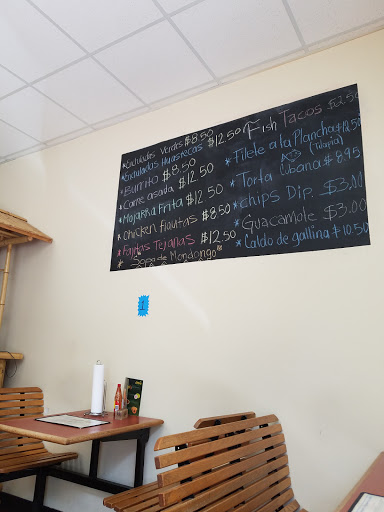 *Enchiladas Verdes $8.50
*Enchiladas Huastecas $12.50
*Burrito $8.50
*Carne asada $12.50
*Mojarra Frita $12.50
*Chicken Flautas $8.50
*Fajitas Tejanas $12.50
* Sopa de Mondongo
*Fish Tacos $2.50
*Filete a la Plancha $12.50
(Tilapia)
*Torta Cubana $8.95
*chips Dip. $3.00
*Guacamole $3.00
*Caldo de gallina $10.50